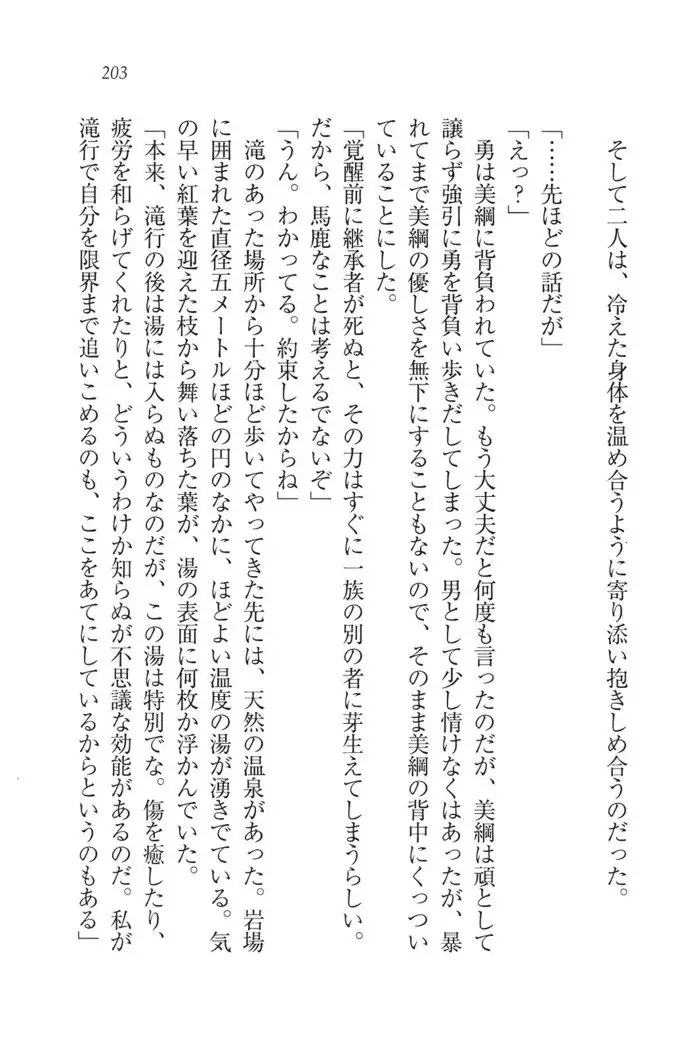 203
そして二人は、冷えた身体を温め合うように寄り添い抱きしめ合うのだった。
「……先ほどの話だが」
「えっ？」
勇は美綱に背負われていた。もう大丈夫だと何度も言ったのだが、美綱は頑として
譲らず強引に勇を背負い歩きだしてしまった。男として少し情けなくはあったが、暴
れてまで美綱の優しさを無下にすることもないので、そのまま美綱の背中にくっつい
ていることにした。
「覚醒前に継承者が死ぬと、その力はすぐに一族の別の者に芽生えてしまうらしい。
だから、馬鹿なことは考えるでないぞ」
「うん。わかってる。約束したからね」
滝のあった場所から十分ほど歩いてやってきた先には、天然の温泉があった。岩場
に囲まれた直径五メートルほどの円のなかに、ほどよい温度の湯が湧きでている。気
の早い紅葉を迎えた枝から舞い落ちた葉が、湯の表面に何枚か浮かんでいた。
「本来、滝行の後は湯には入らぬものなのだが、この湯は特別でな。傷を癒したり、
疲労を和らげてくれたりと、どういうわけか知らぬが不思議な効能があるのだ。私が
滝行で自分を限界まで追いこめるのも、ここをあてにしているからというのもある」